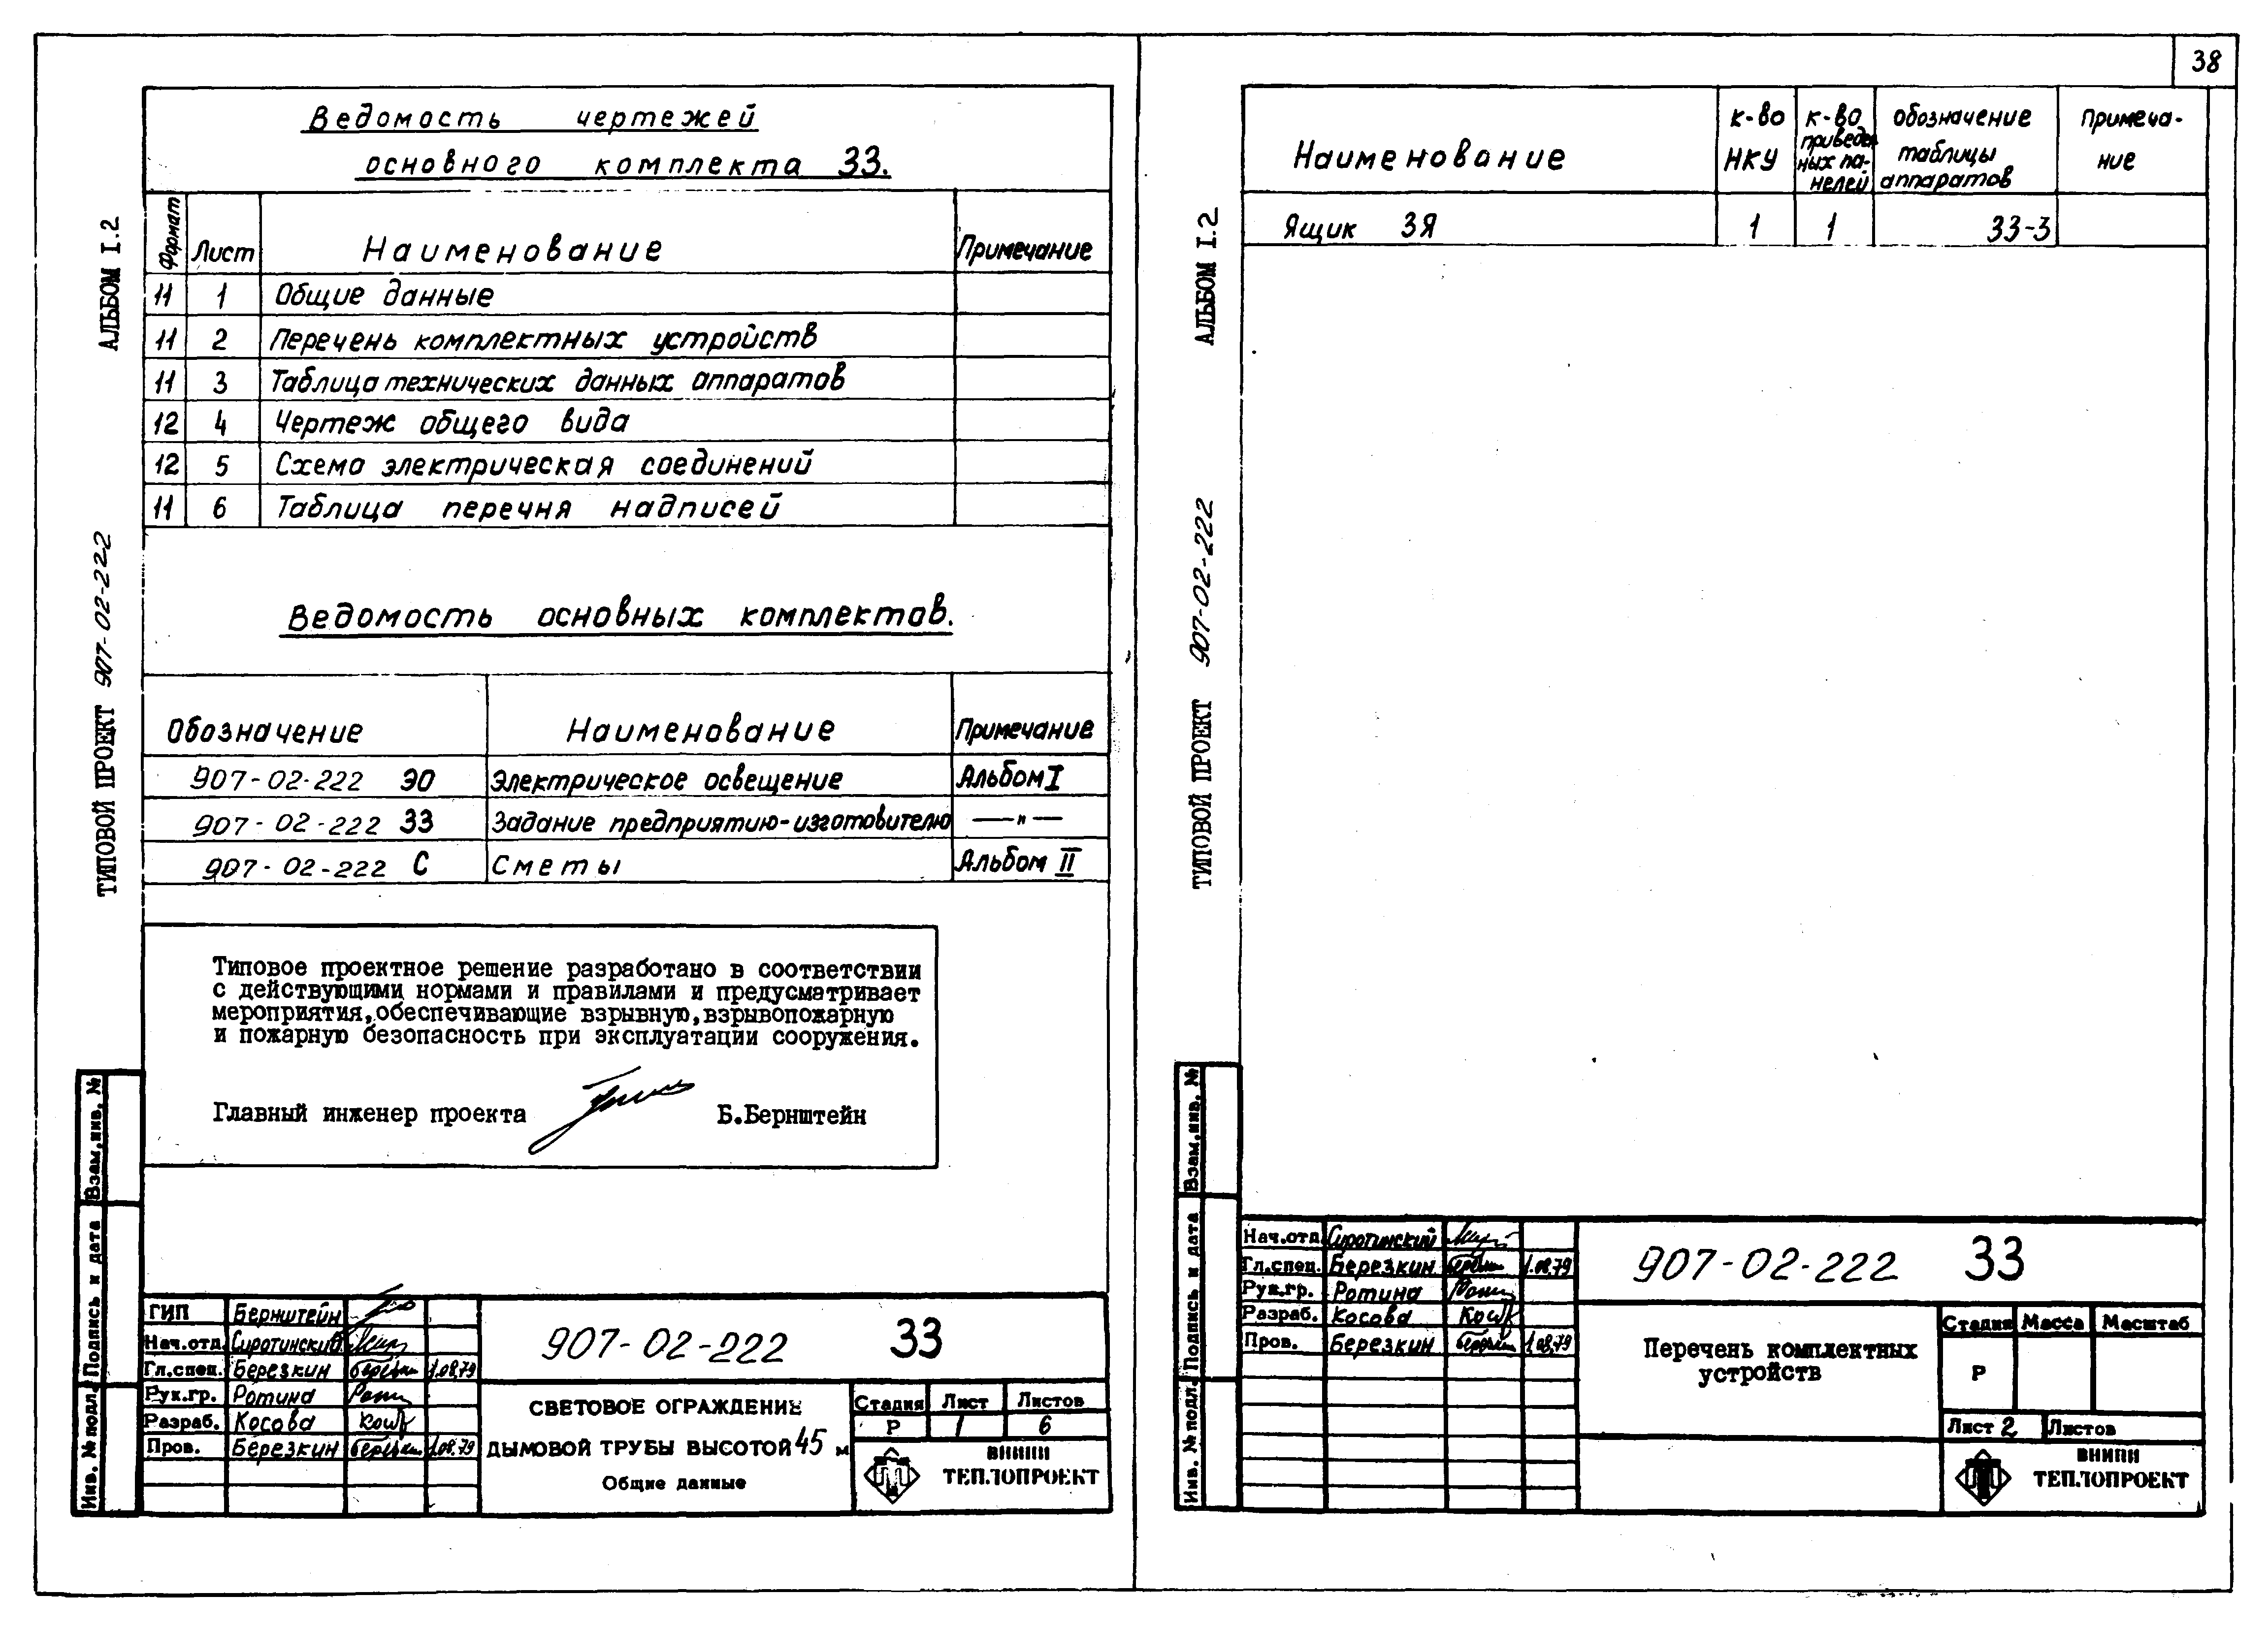 38
Ведомость чертежей
основного комплекта ЗЗ.
Формат Лист Наименование Примечание
11 1 Общие данные
11 2 Перечень комплектных устройств
11 3 Таблица технических данных аппаратов
12 4 Чертеж общего вида
12 5 Схема электрическая соединений
11 6 Таблица перечня надписей
Ведомость основных комплектов.
Обозначение Наименование Примечание
907-02-222 ЭО Электрическое освещение Альбом I
907-02-222 ЗЗ Задание предприятию-изготовителю —"—
907-02-222 С Сметы Альбом II
Типовое проектное решение разработано в соответствии
с действующими нормами и правилами и предусматривает
мероприятия, обеспечивающие взрывную, взрывопожарную
и пожарную безопасность при эксплуатации сооружения.
Главный инженер проекта Б.Бернштейн
АЛЬБОМ I.2
ТИПОВОЙ ПРОЕКТ 907-02-222
Взам.инв. №
Подпись и дата
Инв. № подл.
ГИП Бернштейн
Нач.отд. Сиротинский
Гл.спец. Березкин 1.08.79
Рук.гр. Ротина
Разраб. Косова
Пров. Березкин 1.08.79
907-02-222 ЗЗ
СВЕТОВОЕ ОГРАЖДЕНИЕ
ДЫМОВОЙ ТРУБЫ ВЫСОТОЙ 45 м
Общие данные
Стадия Лист Листов
Р 1 6
ВНИПИ
ТЕПЛОПРОЕКТ
Наименование
к-во
НКУ
к-во
приведен
ных па-
нелей
обозначение
таблицы
аппаратов
Примеча-
ние
Ящик ЗЯ 1 1 ЗЗ-3
АЛЬБОМ I.2
ТИПОВОЙ ПРОЕКТ 907-02-222
Взам.инв. №
Подпись и дата
Инв. № подл.
Нач.отд. Сиротинский
Гл.спец. Березкин 1.08.79
Рук.гр. Ротина
Разраб. Косова
Пров. Березкин 1.08.79
907-02-222 ЗЗ
Перечень комплектных
устройств
Стадия Масса Масштаб
Р
Лист 2 Листов
ВНИПИ
ТЕПЛОПРОЕКТ